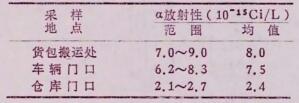 采样 α放射性(10⁻¹⁵Ci/L)
地点 范围 均值
货包搬运处 7.0～9.0 8.0
车辆门口 6.2～8.3 7.5
仓库门口 2.1～2.7 2.4